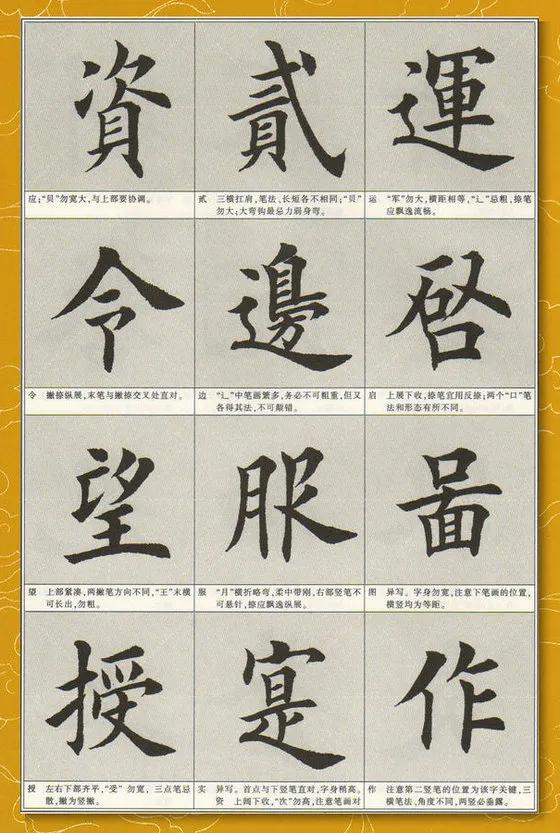 運
运 "军"勿大,横距相等,"辶"忌粗,捺笔
应飘逸流畅。
啓
启 上展下收,捺笔宜用反捺;两个"口"笔
法和形态有所不同。
啚
图 异写。字身勿宽,注意下笔画的位置,
横竖均为等距。
作
作 注意第二竖笔的位置为该字关键,三
横笔法、角度不同,两竖必垂露。
貳
贰 三横扛肩,笔法、长短各不相同;"贝"
勿大;大弯钩最忌力弱身弯。
邊
边 "辶"中笔画繁多,务必不可粗重,但又
各得其法,不可颠错。
服
服 "月"横折略弯,柔中带刚,右部竖笔不
可悬针,捺应飘逸纵展。
寔
实 异写。首点与下竖笔直对,字身稍高。
资 上阔下收,"次"勿高,注意笔画对
資
应;"贝"勿宽大,与上部要协调。
令
令 撇捺纵展,末笔与撇捺交叉处直对。
望
望 上部紧凑,两撇笔方向不同,"王"末横
可长出,勿粗。
授
授 左右下部齐平,"受"勿宽,三点笔忌
散,撇为竖撇。